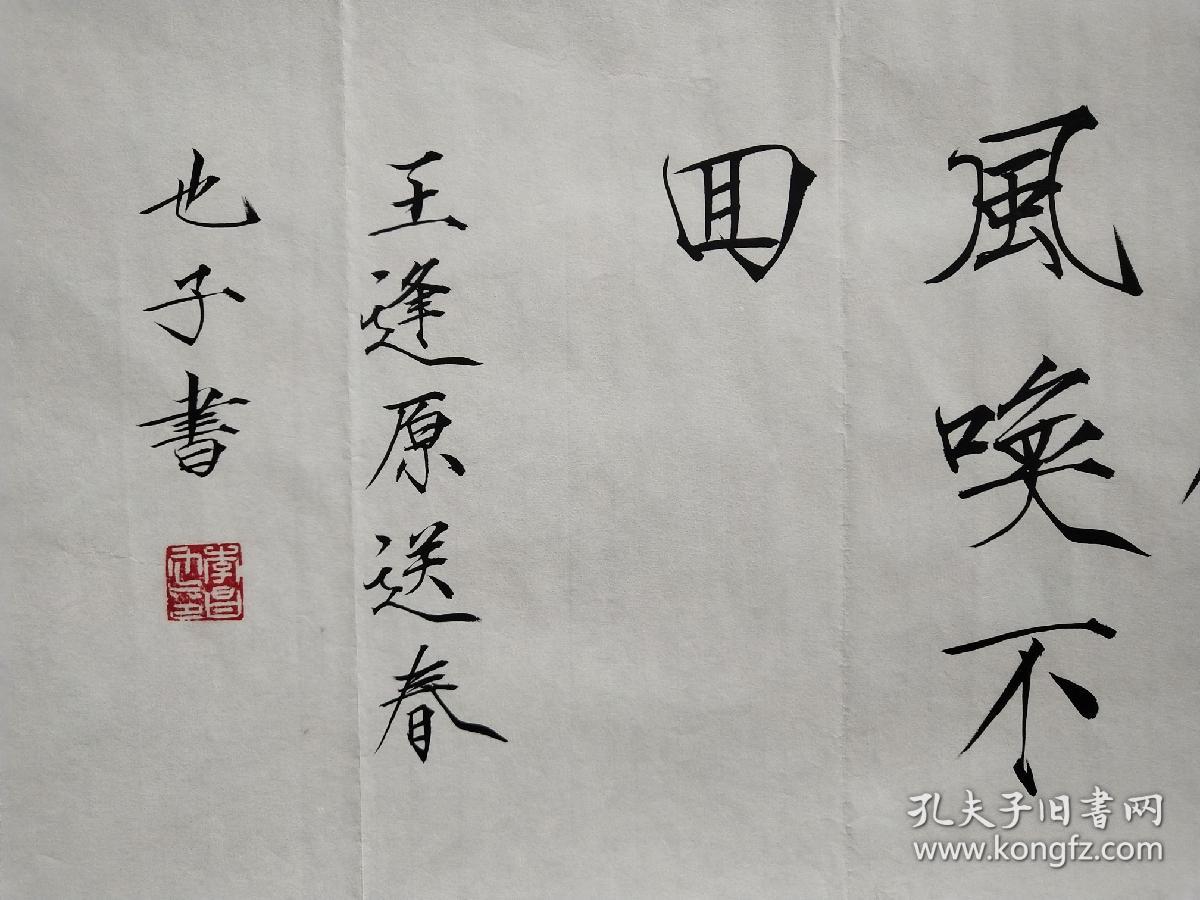 風唤不
回
王逢原送春
也子書
孔夫子旧書网
www.kongfz.com